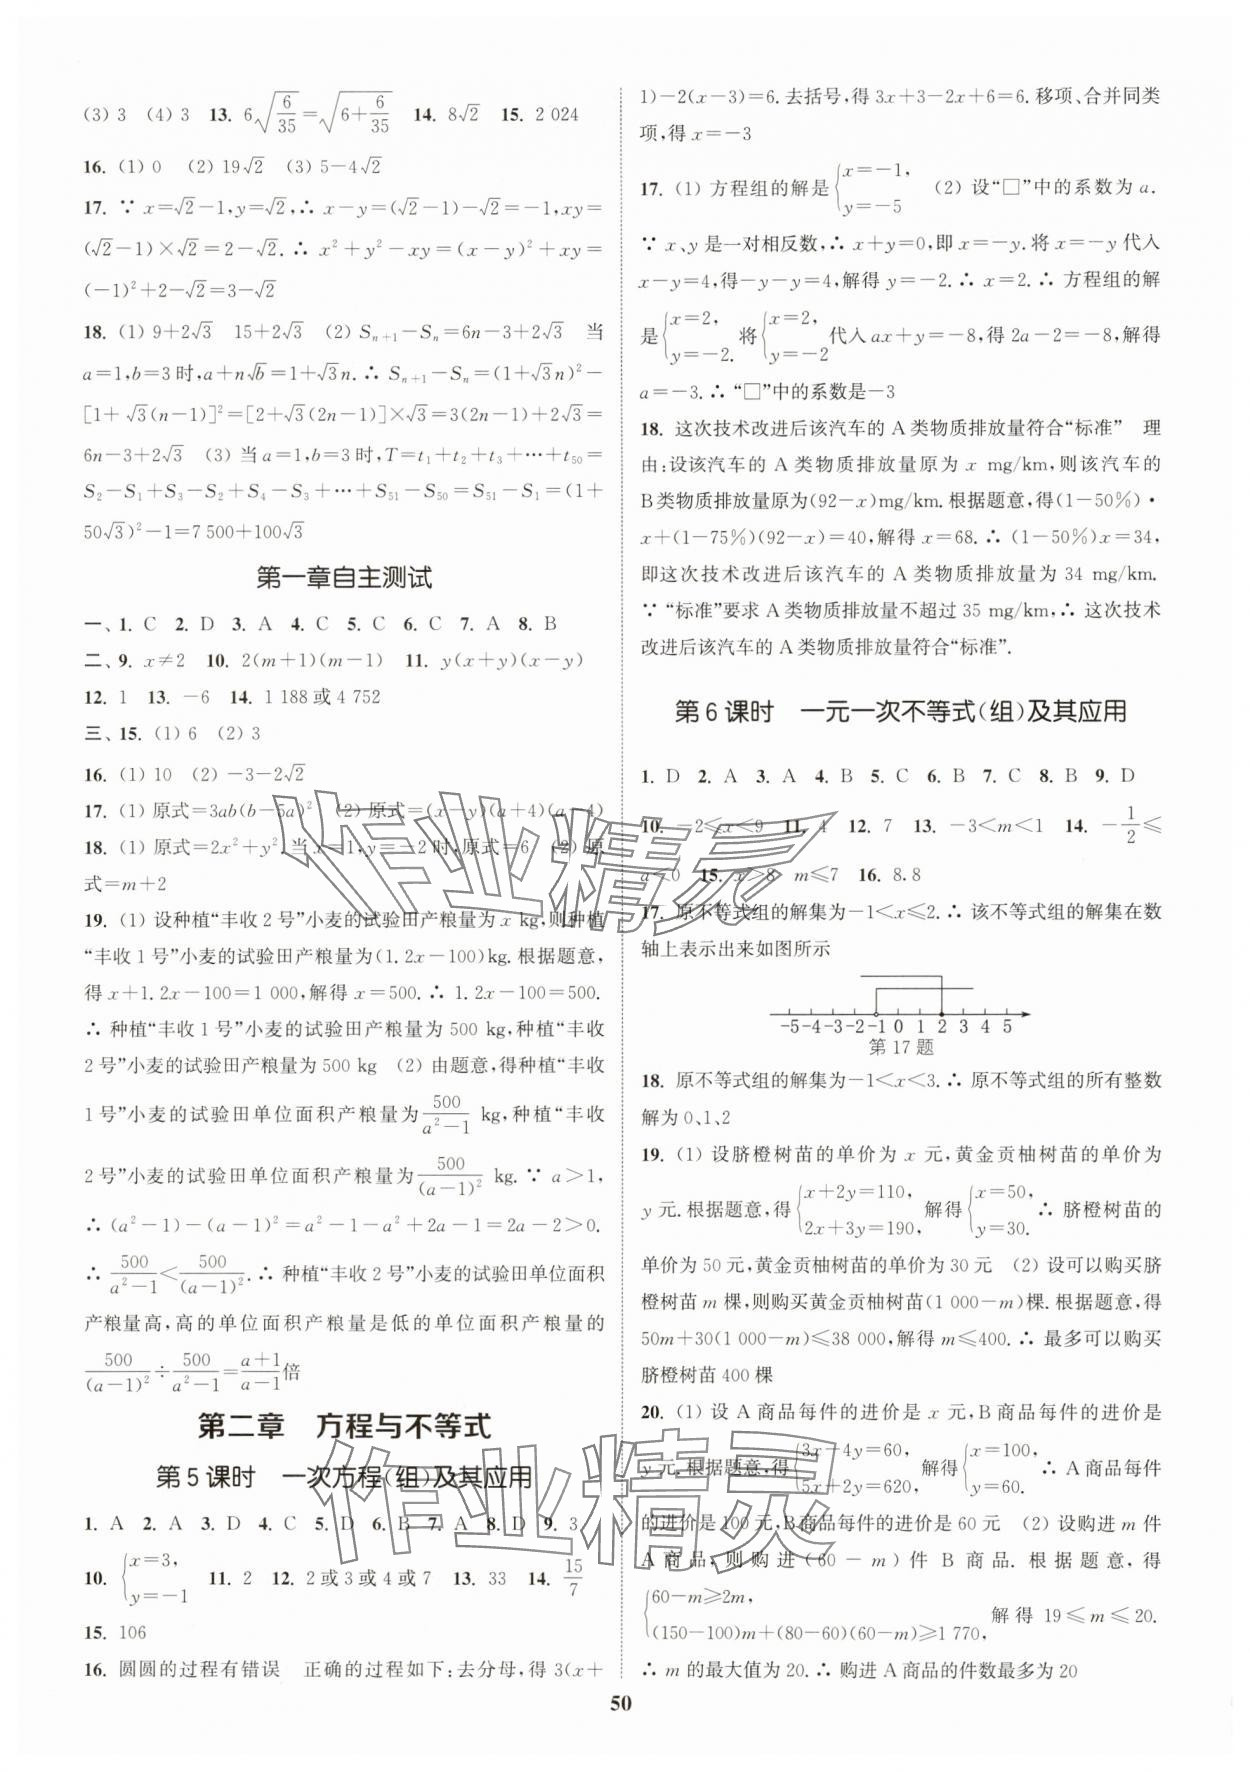 (3) 3　(4) 3　13. 6√(6/35)=√(6+6/35)　14. 8√2　15. 2 024
16. (1) 0　(2) 19√2　(3) 5−4√2
17. ∵ x=√2−1,y=√2,∴ x−y=(√2−1)−√2=−1,xy=
(√2−1)×√2=2−√2.∴ x²+y²−xy=(x−y)²+xy=
(−1)²+2−√2=3−√2
18. (1) 9+2√3　15+2√3　(2) Sₙ₊₁−Sₙ=6n−3+2√3　当
a=1,b=3时,a+n√b=1+√3n.∴ Sₙ₊₁−Sₙ=(1+√3n)²−
[1+√3(n−1)]²=[2+√3(2n−1)]×√3=3(2n−1)+2√3=
6n−3+2√3　(3) 当a=1,b=3时,T=t₁+t₂+t₃+⋯+t₅₀=
S₂−S₁+S₃−S₂+S₄−S₃+⋯+S₅₁−S₅₀=S₅₁−S₁=(1+
50√3)²−1=7 500+100√3
第一章自主测试
一、1. C　2. D　3. A　4. C　5. C　6. C　7. A　8. B
二、9. x≠2　10. 2(m+1)(m−1)　11. y(x+y)(x−y)
12. 1　13. −6　14. 1 188或4 752
三、15. (1) 6　(2) 3
16. (1) 10　(2) −3−2√2
17. (1) 原式=3ab(b−5a)²　(2) 原式=(x−y)(a+4)(a−4)
18. (1) 原式=2x²+y².当x=1,y=−2时,原式=6　(2) 原
式=m+2
19. (1) 设种植“丰收2号”小麦的试验田产粮量为x kg,则种植
“丰收1号”小麦的试验田产粮量为(1.2x−100)kg.根据题意,
得x+1.2x−100=1 000,解得x=500.∴ 1.2x−100=500.
∴ 种植“丰收1号”小麦的试验田产粮量为500 kg,种植“丰收
2号”小麦的试验田产粮量为500 kg　(2) 由题意,得种植“丰收
1号”小麦的试验田单位面积产粮量为500/(a²−1) kg,种植“丰收
2号”小麦的试验田单位面积产粮量为500/(a−1)² kg.∵ a>1,
∴ (a²−1)−(a−1)²=a²−1−a²+2a−1=2a−2>0.
∴ 500/(a²−1)<500/(a−1)².∴ 种植“丰收2号”小麦的试验田单位面积
产粮量高,高的单位面积产粮量是低的单位面积产粮量的
500/(a−1)²÷500/(a²−1)=(a+1)/(a−1)倍
第二章　方程与不等式
第5课时　一次方程(组)及其应用
1. A　2. A　3. D　4. C　5. D　6. B　7. A　8. D　9. 3
10. {x=3, y=−1　11. 2　12. 2或3或4或7　13. 33　14. 15/7
15. 106
16. 圆圆的过程有错误　正确的过程如下:去分母,得3(x+
1)−2(x−3)=6.去括号,得3x+3−2x+6=6.移项、合并同类
项,得x=−3
17. (1) 方程组的解是{x=−1, y=−5　(2) 设“□”中的系数为a.
∵ x、y是一对相反数,∴ x+y=0,即x=−y.将x=−y代入
x−y=4,得−y−y=4,解得y=−2.∴ x=2.∴ 方程组的解
是{x=2, y=−2. 将{x=2, y=−2代入ax+y=−8,得2a−2=−8,解得
a=−3.∴ “□”中的系数是−3
18. 这次技术改进后该汽车的A类物质排放量符合“标准”　理
由:设该汽车的A类物质排放量原为x mg/km,则该汽车的
B类物质排放量原为(92−x)mg/km.根据题意,得(1−50%)·
x+(1−75%)(92−x)=40,解得x=68.∴ (1−50%)x=34,
即这次技术改进后该汽车的A类物质排放量为34 mg/km.
∵ “标准”要求A类物质排放量不超过35 mg/km,∴ 这次技术
改进后该汽车的A类物质排放量符合“标准”.
第6课时　一元一次不等式(组)及其应用
1. D　2. A　3. A　4. B　5. C　6. B　7. C　8. B　9. D
10. −2≤x<9　11. 4　12. 7　13. −3<m<1　14. −1/2≤
a<0　15. x>8　m≤7　16. 8.8
17. 原不等式组的解集为−1<x≤2.∴ 该不等式组的解集在数
轴上表示出来如图所示
−5−4−3−2−1 0 1 2 3 4 5
第17题
18. 原不等式组的解集为−1<x<3.∴ 原不等式组的所有整数
解为0、1、2
19. (1) 设脐橙树苗的单价为x元,黄金贡柚树苗的单价为
y元.根据题意,得{x+2y=110, 2x+3y=190, 解得{x=50, y=30. ∴ 脐橙树苗的
单价为50元,黄金贡柚树苗的单价为30元　(2) 设可以购买脐
橙树苗m棵,则购买黄金贡柚树苗(1 000−m)棵.根据题意,得
50m+30(1 000−m)≤38 000,解得m≤400.∴ 最多可以购买
脐橙树苗400棵
20. (1) 设A商品每件的进价是x元,B商品每件的进价是
y元.根据题意,得{3x−4y=60, 5x+2y=620, 解得{x=100, y=60. ∴ A商品每件
的进价是100元,B商品每件的进价是60元　(2) 设购进m件
A商品,则购进(60−m)件B商品.根据题意,得
{60−m≥2m, (150−100)m+(80−60)(60−m)≥1 770, 解得19≤m≤20.
∴ m的最大值为20.∴ 购进A商品的件数最多为20
50
作业精灵
作业精灵